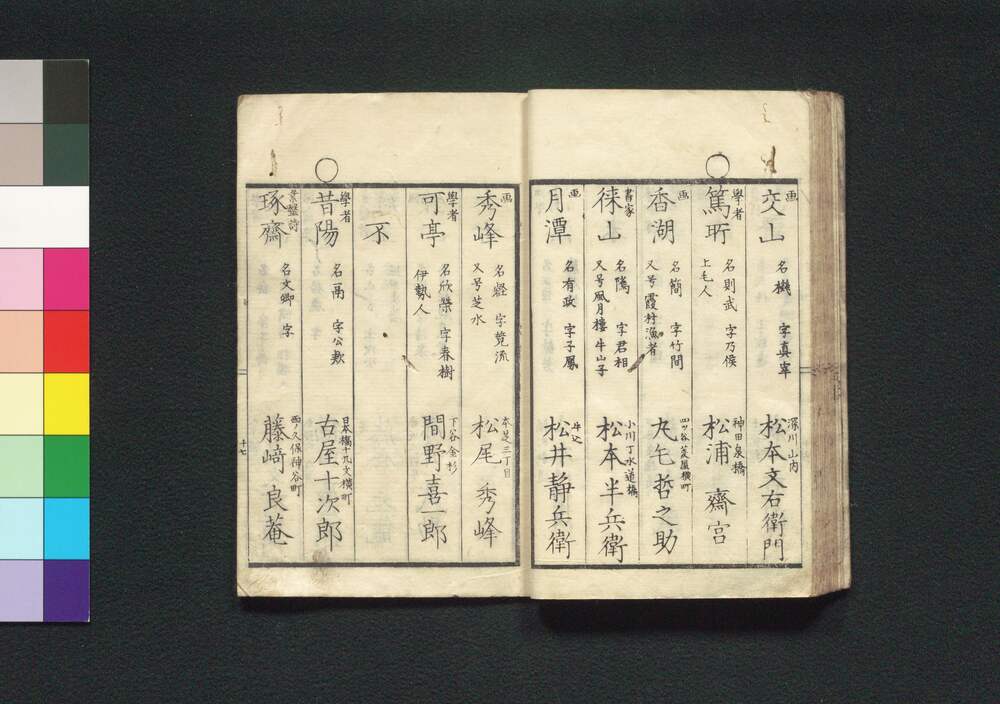 画
交山
名機 字真宰
深川山内
松本文右衛門
學者
篤所
名則武 字乃侯
上毛人
神田泉橋
松浦 齋宮
画
香湖
名簡 字竹間
又号霞村漁者
四ッ谷
横町
哲之助
書家
徠山
名隲 字君相
又号風月樓 牛山子
小川丁水道橋
松本半兵衛
画
月潭
名有政 字子鳳
牛込
松井静兵衛
画
秀峰
名 字筧流
又号芝水
本芝三丁目
松尾 秀峰
學者
可亭
名欣榮 字春樹
伊勢人
下谷金杉
間野喜一郎
不
學者
昔陽
名鬲 字公款
日本橋十九文横町
古屋十次郎
詩
琢齋
名文卿 字
西ノ久保神谷町
藤﨑 良菴
十七